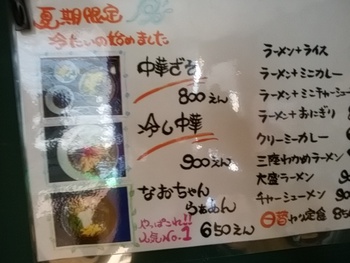 夏期限定
冷たいの始めました
中華ざる
800えん
冷し中華
900えん
なおちゃん
らぁめん
やっぱこれ!!
人気No.1
650えん
ラーメン+ライス
ラーメン+ミニカレー
ラーメン+ミニチャーシュー
ラーメン+おにぎり
クリーミーカレー
三陸わかめラーメン
大盛ラーメン
チャーシューメン